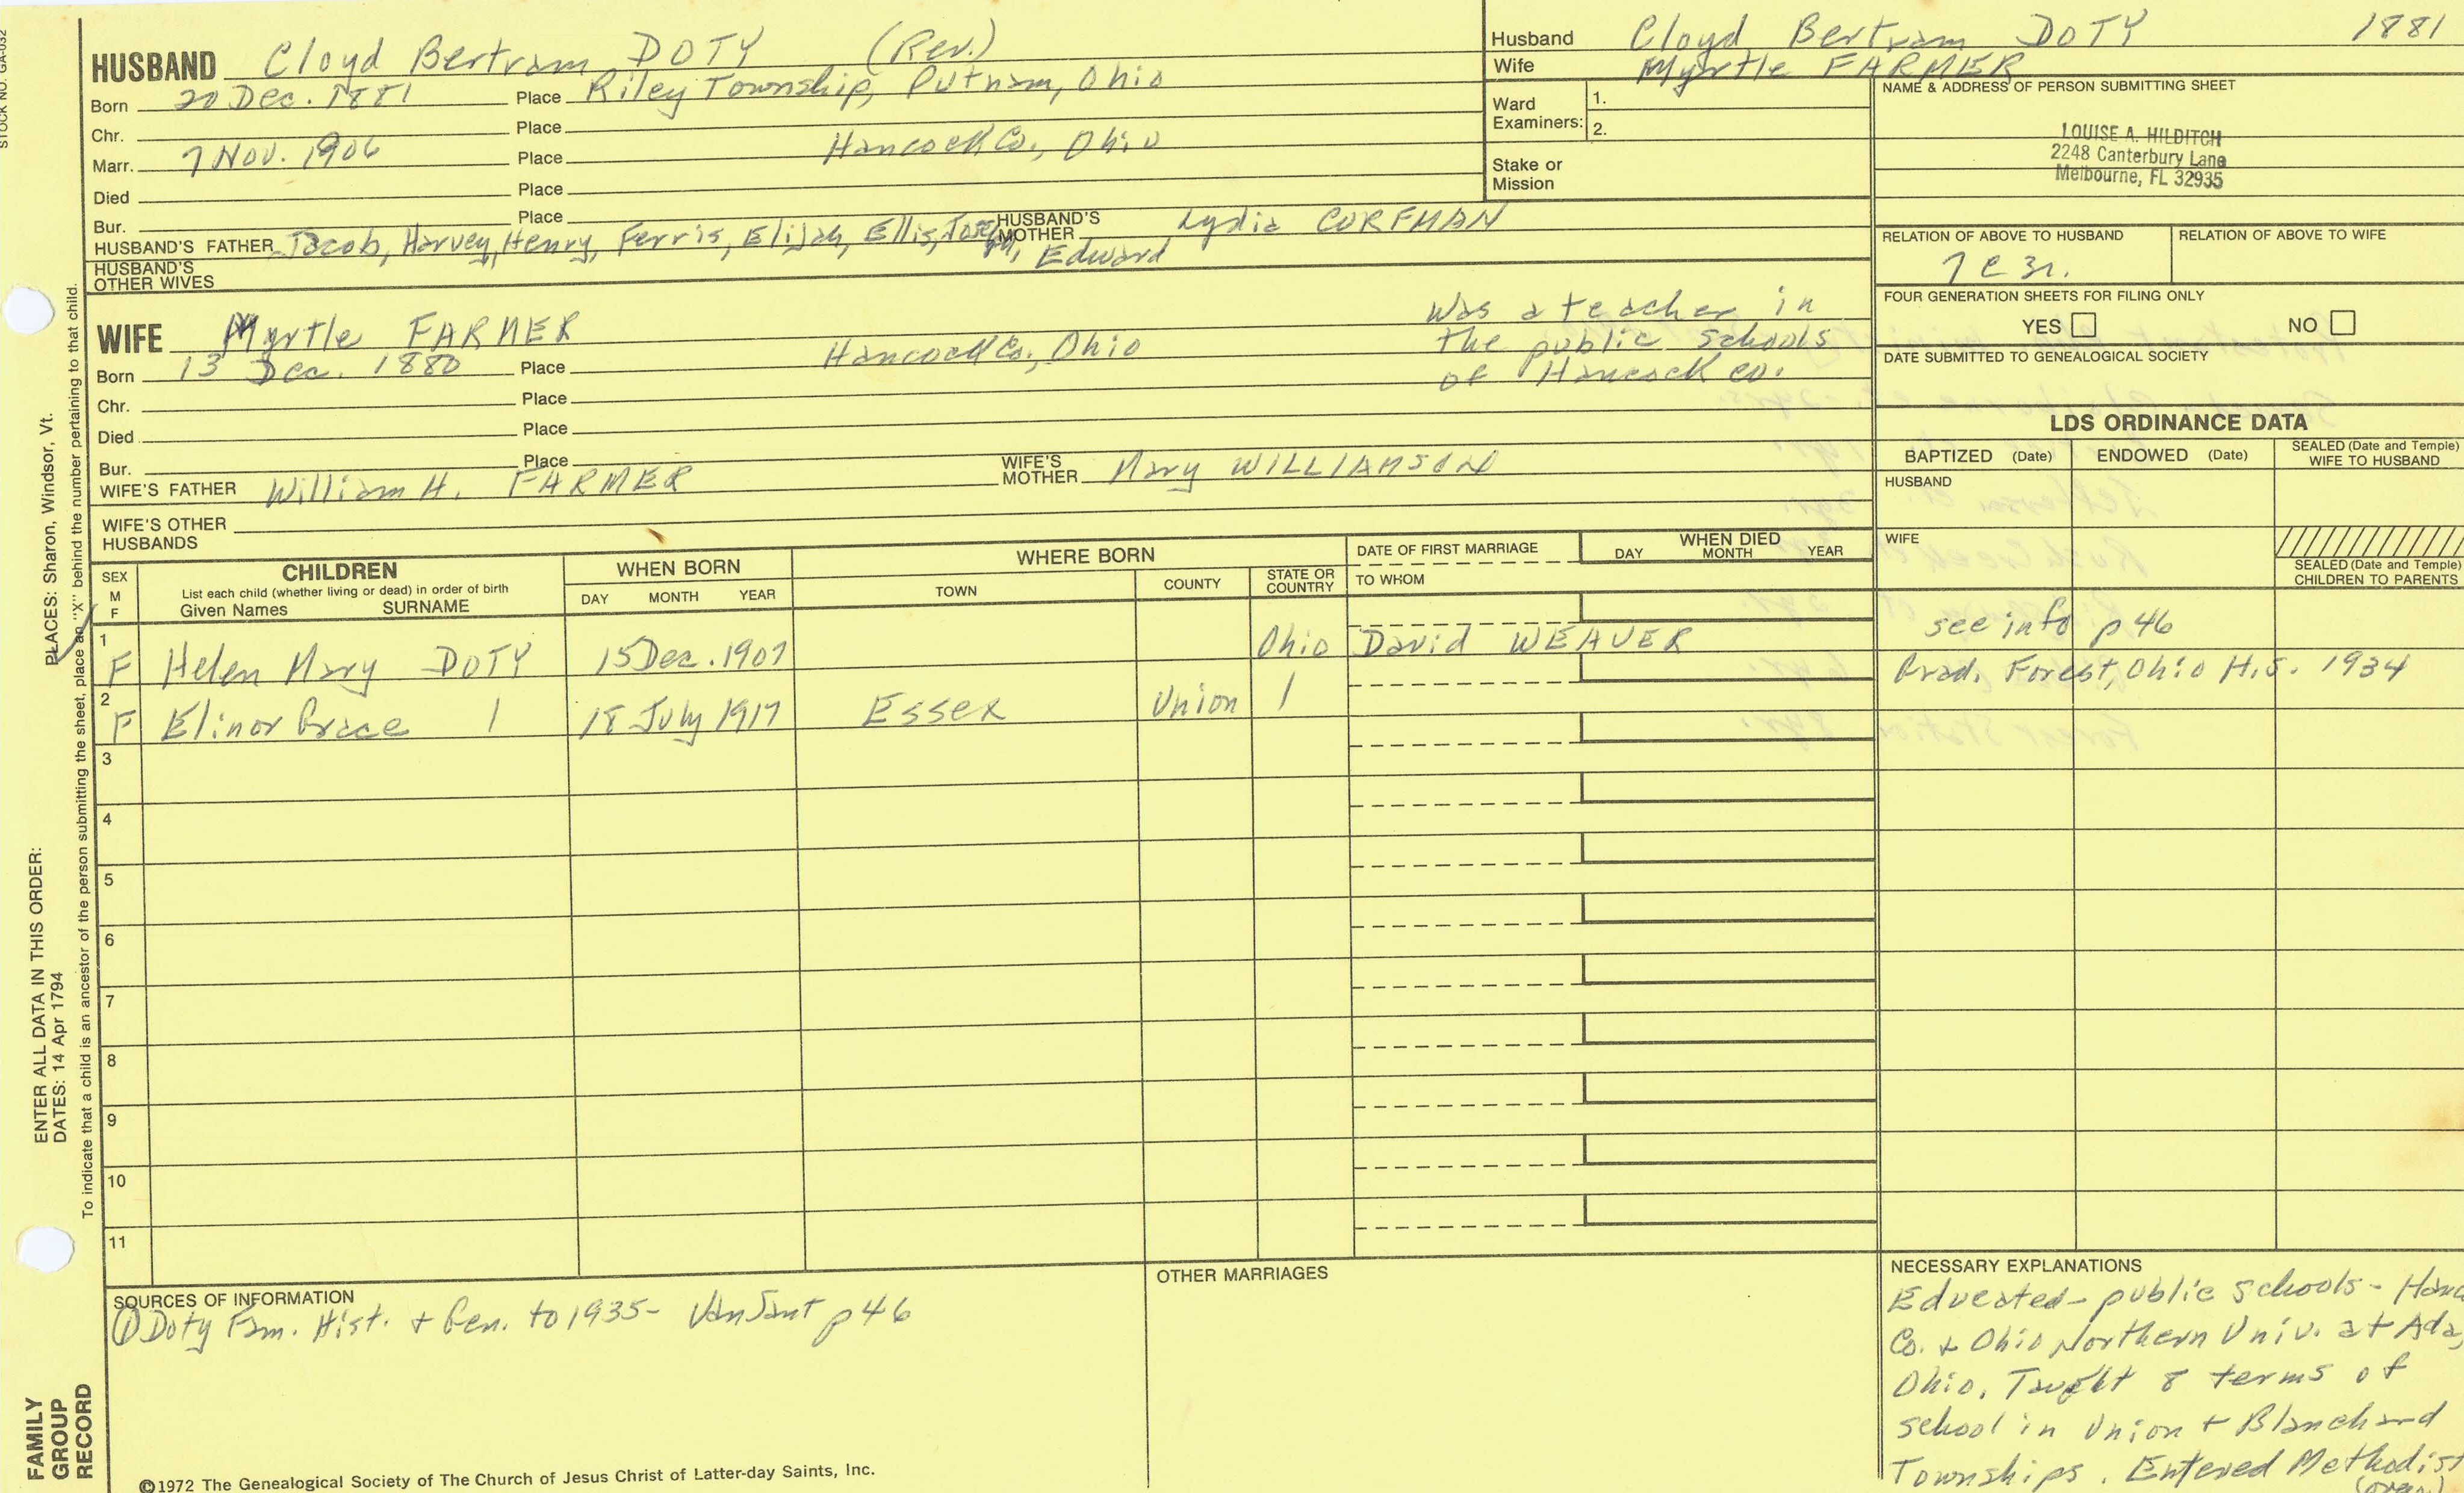 STOCK NO. GA-032
HUSBAND Cloyd Bertram DOTY (Rev.)
Born 20 Dec. 1881 Place Riley Township, Putnam, Ohio
Chr. Place
Marr. 7 Nov. 1906 Place Hancock Co., Ohio
Died Place
Bur. Place
HUSBAND'S FATHER Jacob, Harvey, Henry, Ferris, Elijah, Ellis, Joseph, Edward HUSBAND'S MOTHER Lydia CORFMAN
HUSBAND'S OTHER WIVES
WIFE Myrtle FARMER
Born 13 Dec. 1880 Place Hancock Co., Ohio
Was a teacher in
the public schools
of Hancock Co.
Chr. Place
Died Place
Bur. Place
WIFE'S FATHER William H. FARMER WIFE'S MOTHER Mary WILLIAMSON
WIFE'S OTHER HUSBANDS
Husband Cloyd Bertram DOTY 1881
Wife Myrtle FARMER
Ward Examiners: 1. 2.
Stake or Mission
NAME & ADDRESS OF PERSON SUBMITTING SHEET
LOUISE A. HILDITCH
2248 Canterbury Lane
Melbourne, FL 32935
RELATION OF ABOVE TO HUSBAND RELATION OF ABOVE TO WIFE
FOUR GENERATION SHEETS FOR FILING ONLY
YES NO
DATE SUBMITTED TO GENEALOGICAL SOCIETY
LDS ORDINANCE DATA
BAPTIZED (Date) ENDOWED (Date) SEALED (Date and Temple) WIFE TO HUSBAND
HUSBAND
WIFE
SEALED (Date and Temple) CHILDREN TO PARENTS
SEX M F
CHILDREN
List each child (whether living or dead) in order of birth
Given Names SURNAME
WHEN BORN
DAY MONTH YEAR
WHERE BORN
TOWN COUNTY STATE OR COUNTRY
DATE OF FIRST MARRIAGE
TO WHOM
WHEN DIED
DAY MONTH YEAR
1 F Helen Mary DOTY 15 Dec. 1907 Ohio David WEAVER see info p 46
2 F Elinor Grace 18 July 1917 Essex Union Grad. Forest, Ohio H.S. 1934
3
4
5
6
7
8
9
10
11
SOURCES OF INFORMATION
① Doty Fam. Hist. + Gen. to 1935- VanSant p 46
OTHER MARRIAGES
NECESSARY EXPLANATIONS
Educated - public schools - Hanc
Co. + Ohio Northern Univ. at Ada,
Ohio. Taught 8 terms of
school in Union + Blanchard
Townships. Entered Methodist
(over)
©1972 The Genealogical Society of The Church of Jesus Christ of Latter-day Saints, Inc.
FAMILY
GROUP
RECORD
ENTER ALL DATA IN THIS ORDER:
DATES: 14 Apr 1794
PLACES: Sharon, Windsor, Vt.
To indicate that a child is an ancestor of the person submitting the sheet, place an "X" behind the number pertaining to that child.